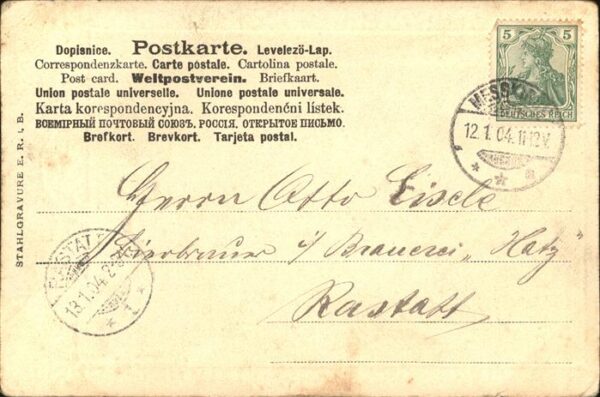 Dopisnice. Postkarte. Levelező-Lap.
Correspondenzkarte. Carte postale. Cartolina postale.
Post card. Weltpostverein. Briefkaart.
Union postale universelle. Unione postale universale.
Karta korespondencyjna. Korespondenčni listek.
ВСЕМІРНЫЙ ПОЧТОВЫЙ СОЮЗЪ. РОССІЯ. ОТКРЫТОЕ ПИСЬМО.
Brefkort. Brevkort. Tarjeta postal.
5 5
DEUTSCHES REICH
MESSK
12.1.04. 11-12 V.
STAHLGRAVURE E. R. i. B.
Herrn Otto Eisele
Bierbrauer i/ Brauerei „Hatz"
Rastatt
RASTATT
13.1.04. 2-3
* 1 *